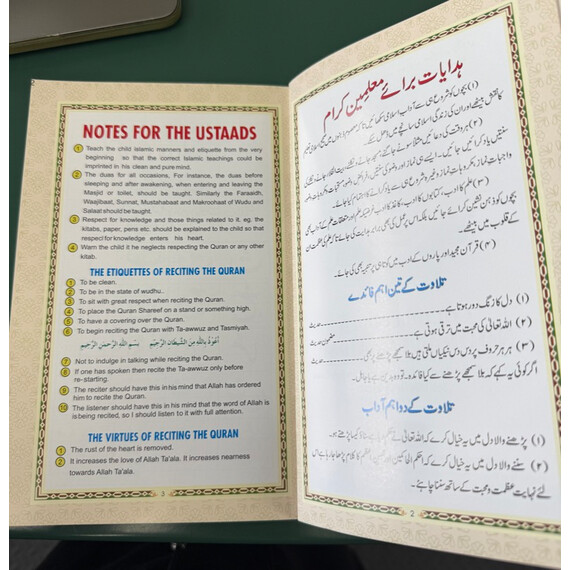 NOTES FOR THE USTAADS
1 Teach the child Islamic manners and etiquette from the very
beginning so that the correct Islamic teachings could be
imprinted in his clean and pure mind.
2 The duas for all occasions, For instance, the duas before
sleeping and after awakening, when entering and leaving the
Masjid or toilet, should be taught. Similarly the Faraaidh,
Waajibaat, Sunnat, Mustahabaat and Makroohaat of Wudu and
Salaat should be taught.
3 Respect for knowledge and those things related to it, eg. the
kitabs, paper, pens etc. should be explained to the child so that
respect for knowledge enters his heart.
4 Warn the child it he neglects respecting the Quran or any other
kitab.
THE ETIQUETTES OF RECITING THE QURAN
1 To be clean.
2 To be in the state of wudhu..
3 To sit with great respect when reciting the Quran.
4 To place the Quran Shareef on a stand or something high.
5 To have a covering over the Quran.
6 To begin reciting the Quran with Ta-awwuz and Tasmiyah.
اَعُوْذُ بِاللّٰهِ مِنَ الشَّيْطَانِ الرَّجِيْمِ بِسْمِ اللّٰهِ الرَّحْمٰنِ الرَّحِيْمِ
7 Not to indulge in talking while reciting the Quran.
8 If one has spoken then recite the Ta-awwuz only before
re-starting.
9 The reciter should have this in his mind that Allah has ordered
him to recite the Quran.
10 The listener should have this in his mind that the word of Allah is
is being recited, so I should listen to it with full attention.
THE VIRTUES OF RECITING THE QURAN
1 The rust of the heart is removed.
2 It increases the love of Allah Ta'ala. It increases nearness
towards Allah Ta'ala.
3
ہدایات برائے معلمین کرام
(۱) بچوں کو شروع ہی سے آداب اسلامی سکھائیں
(۴) قرآن مجید اور پاروں کے ادب میں کوتاہی پر تنبیہ بھی کی جائے۔
تلاوت کے تین اہم فائدے
(۱) دل کا زنگ دور ہوتا ہے۔ حدیث
(۲) اللہ تعالیٰ کی محبت میں ترقی ہوتی ہے۔ مضمون حدیث
(۳) ہر ہر حروف پر دس دس نیکیاں ملتی ہیں بلا سمجھے پڑھے بھی۔ حدیث
تلاوت کے دو اہم آداب
(۱) پڑھنے والا دل میں یہ خیال کرے کہ اللہ تعالیٰ نے حکم دیا ہے سناؤ کیسا پڑھتے ہو۔
(۲) سننے والا دل میں یہ خیال کرے کہ
لئے نہایت عظمت و محبت کے ساتھ سننا چاہئے۔
2